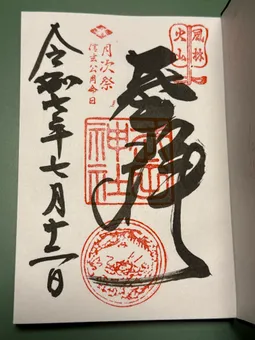 風林
火山
参拝
武田
神社
月次祭
信玄公月命日
令和七年七月十二日